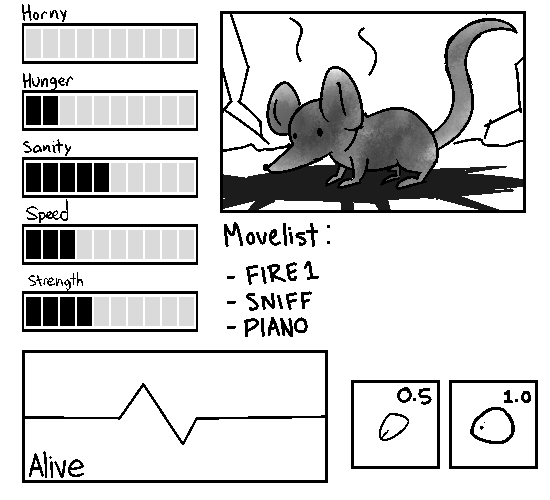 Horny
Hunger
Sanity
Speed
Strength
Movelist:
- FIRE 1
- SNIFF
- PIANO
Alive
0.5
1.0